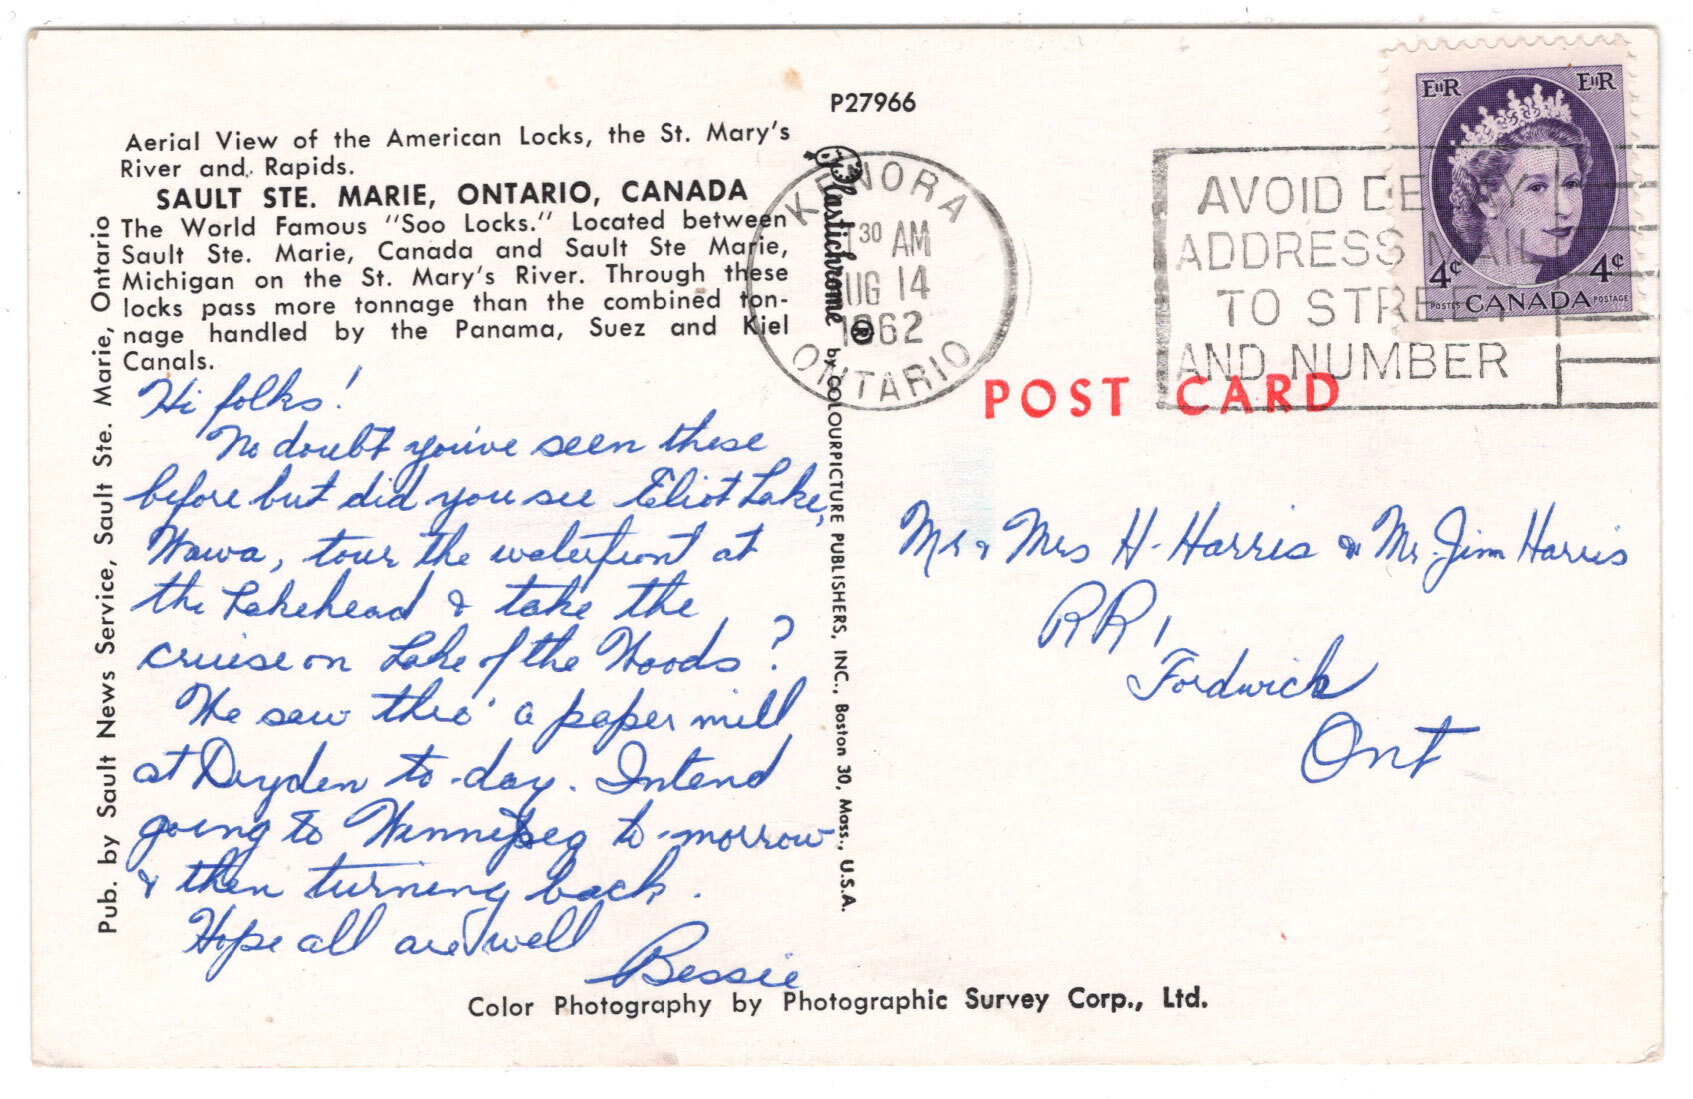 P27966
Aerial View of the American Locks, the St. Mary's
River and, Rapids.
SAULT STE. MARIE, ONTARIO, CANADA
The World Famous "Soo Locks." Located between
Sault Ste. Marie, Canada and Sault Ste Marie,
Michigan on the St. Mary's River. Through these
locks pass more tonnage than the combined ton-
nage handled by the Panama, Suez and Kiel
Canals.
Pub. by Sault News Service, Sault Ste. Marie, Ontario
Hi folks!
No doubt you've seen these
before but did you see Eliot Lake,
Wawa, tour the waterfront at
the Lakehead & take the
cruise on Lake of the Woods?
We saw thro' a paper mill
at Dryden to-day. Intend
going to Winnipeg to-morrow
& then turning back.
Hope all are well
Bessie
Color Photography by Photographic Survey Corp., Ltd.
Plastichrome ® by COLOURPICTURE PUBLISHERS, INC., Boston 30, Mass., U.S.A.
KENORA
30 AM
AUG 14
1962
ONTARIO
AVOID DELAY
ADDRESS MAIL
TO STREET
AND NUMBER
EIIR EIIR
4¢ 4¢
POSTES CANADA POSTAGE
POST CARD
Mr & Mrs H. Harris & Mr. Jim Harris
RR 1
Fordwich
Ont